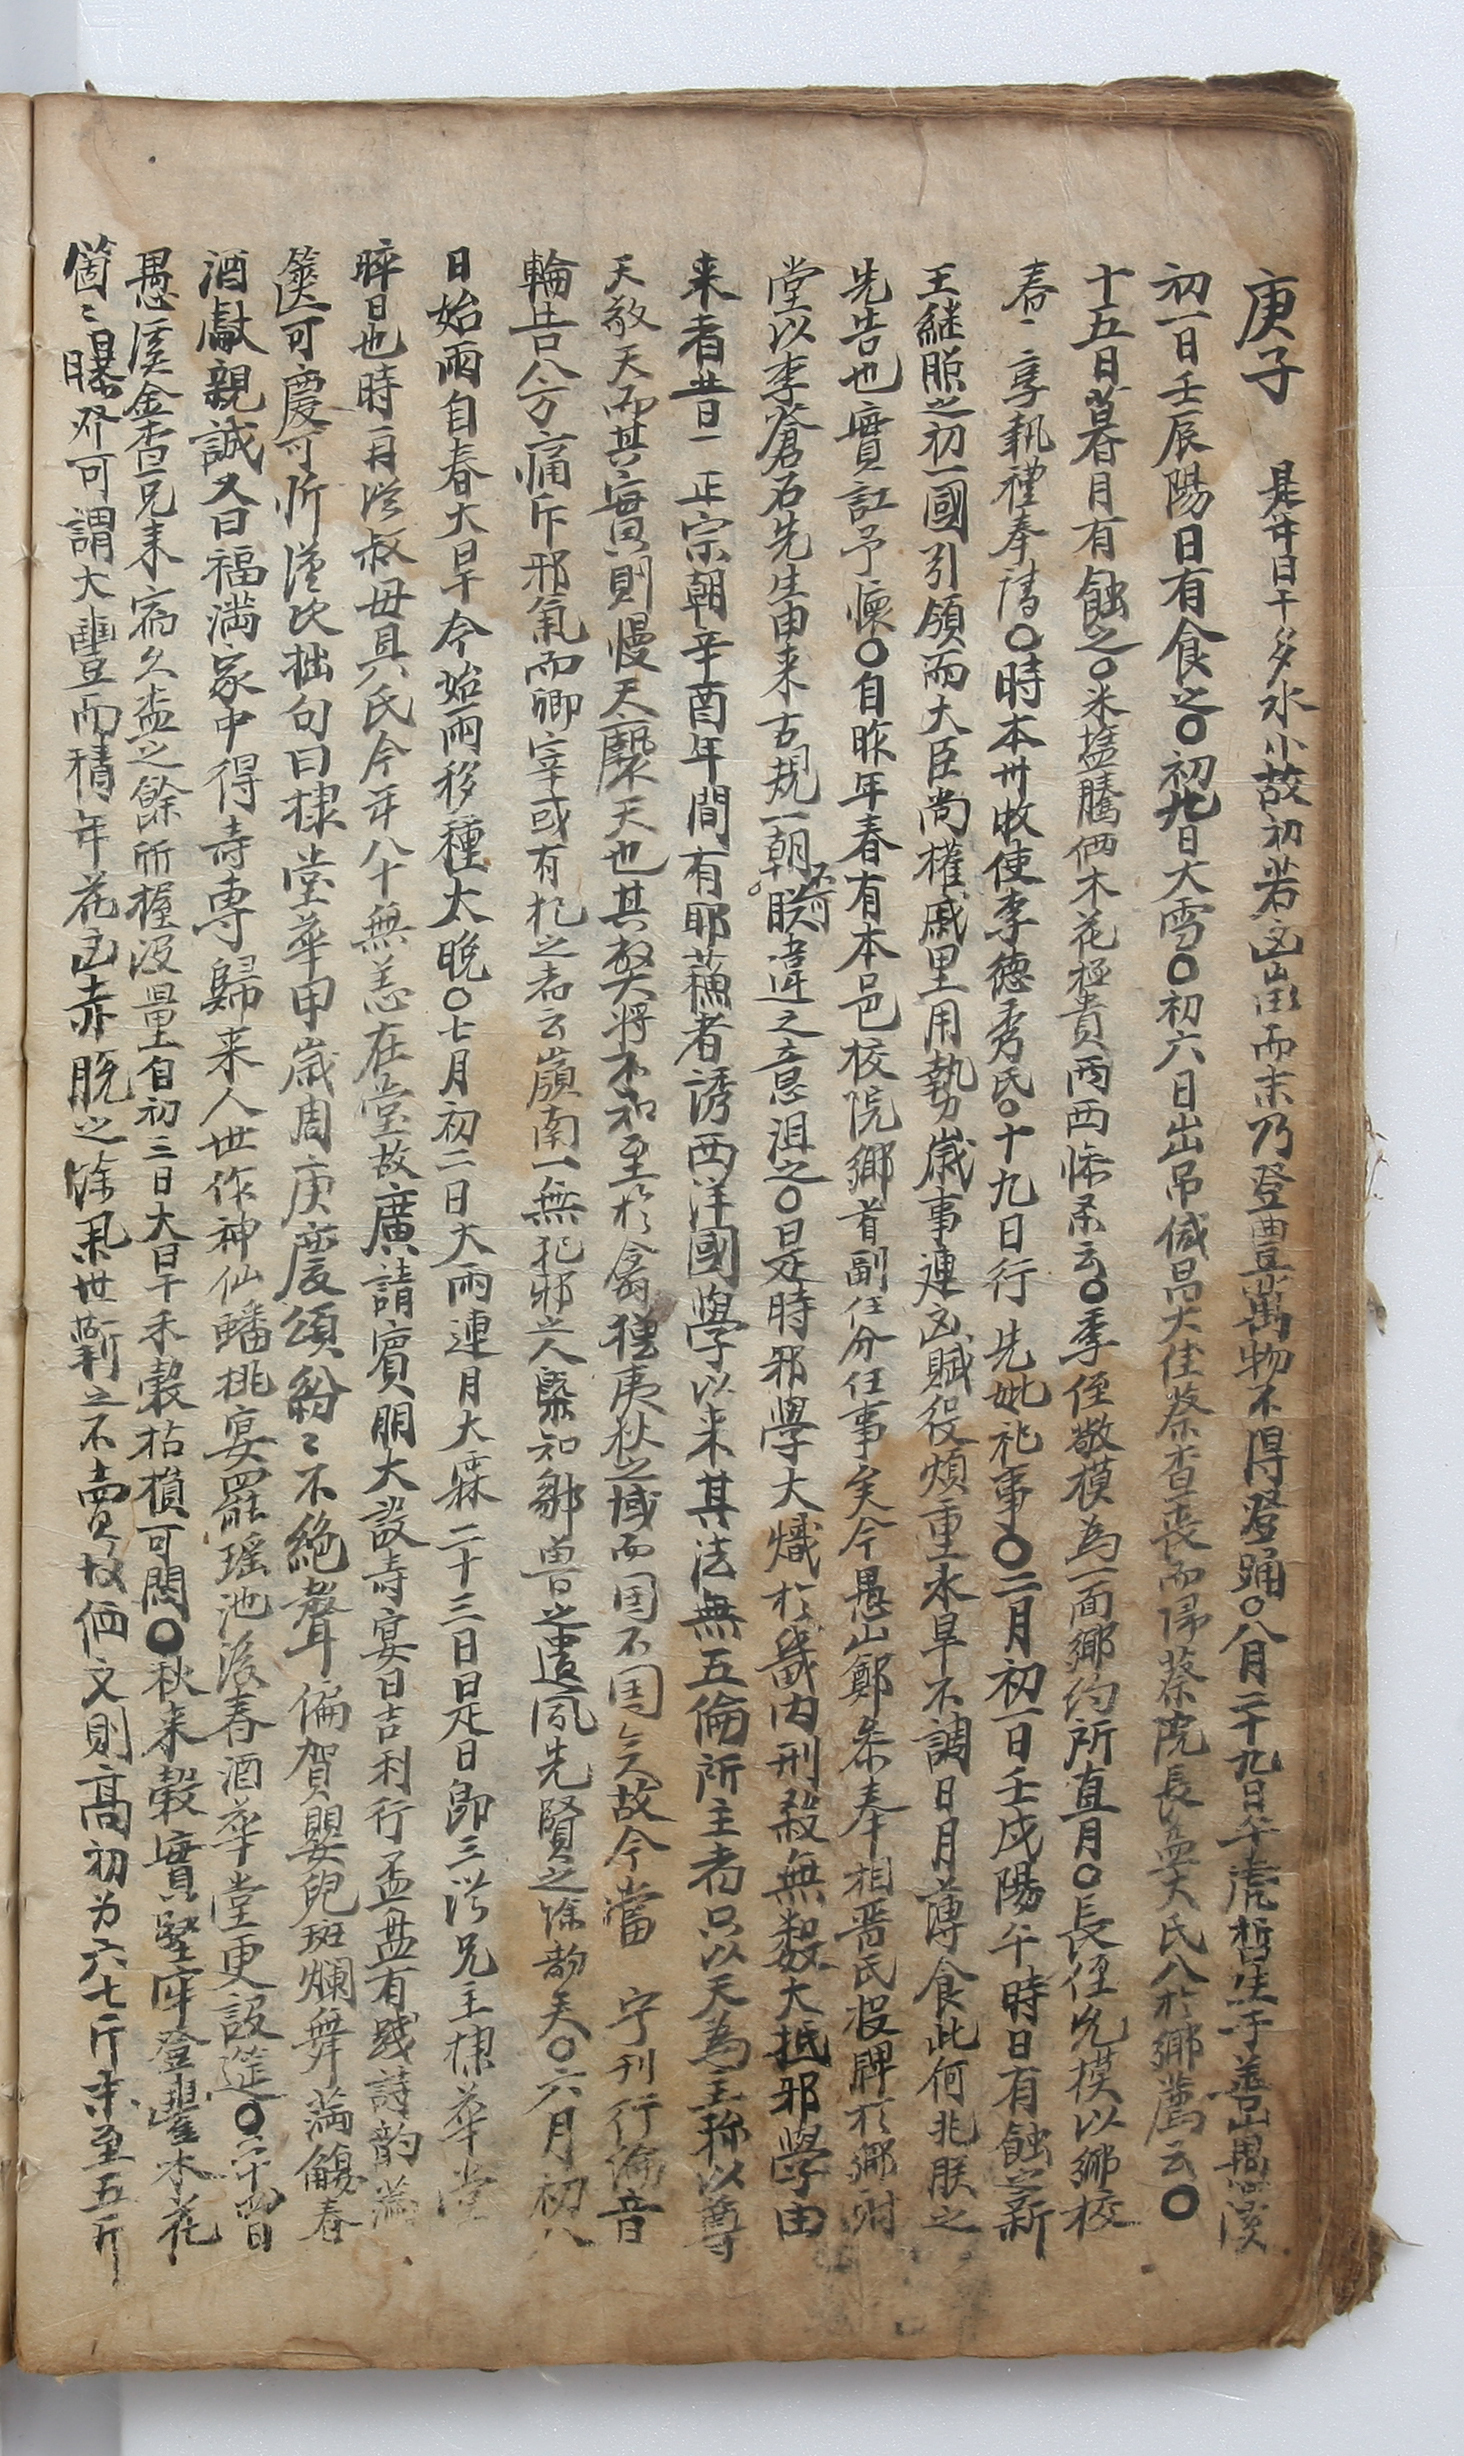 庚子 是年日干多水小故初若凶而末乃登豊萬物不得登踊○八月二十九日午虎哲生于善山愚溪
初一日壬辰陽日有食之○初九日大雪○初六日出吊咸昌大佳蔡查喪而㱕蔡院長孟大氏入於鄕薦云○
十五日暮月有蝕之○米塩騰價木花極貴丙西悕希云○季侄敬模為一面鄕約所直月○長侄允模以鄕校
春享執禮奉請○時本州牧使李德秀氏○十九日行先妣祀事○二月初一日壬戌陽午時日有蝕之新
王継照之初一國引領而大臣尚權戚里用勢歲事連凶賦役煩重水旱不調日月薄食此何兆朕之
先告也實訌予懷○自昨年春有本邑校院鄕首副任分任事矣今愚山鄭叅奉相晋氏投牌於鄕射
堂以李蒼石先生由来古規一朝不可朕違之意沮之○是時邪學大熾於畿内刑殺無数大抵邪學由
来者昔一正宗朝辛酉年間有耶蘓者誘西洋國學以来其法無五倫所主者只以天為主称以尊
天敬天而其實則慢天褻天也其獘将不知至於禽獸夷狄之域而国不国矣故今當 宁刊行綸音
輪告八方痛斥邪氣而卿宰或有犯之者云嶺南一無犯邪之人槩知鄒魯之遺風先賢之餘韵矣○六月初八
日始雨自春大旱今始雨移種太晩○七月初二日大雨連月大霖二十三日是日卽三從兄主棣華堂
晬日也時再從叔母具氏今年八十無恙在堂故廣請賓朋大設壽宴日吉利行盃盤有踐詩韵滿
篋可慶可忻謹次拙句曰棣堂華甲歲周庚慶頌紛〻不絶聲偏賀嬰兒斑爛舞滿觴春
酒獻親誠又曰福満家中得壽專歸来人世作神仙蟠桃宴罷瑶池後春酒華堂更設筵○二十四日
愚溪金查兄来宿久盃之餘所握没量自初三日大旱禾穀枯損可悶○秋来穀實堅庫登豊木花
箇〻曝〻可謂大豊而積年花凶赤脫之餘擧世靳之不賣故価文則高初为六七斤末至五斤